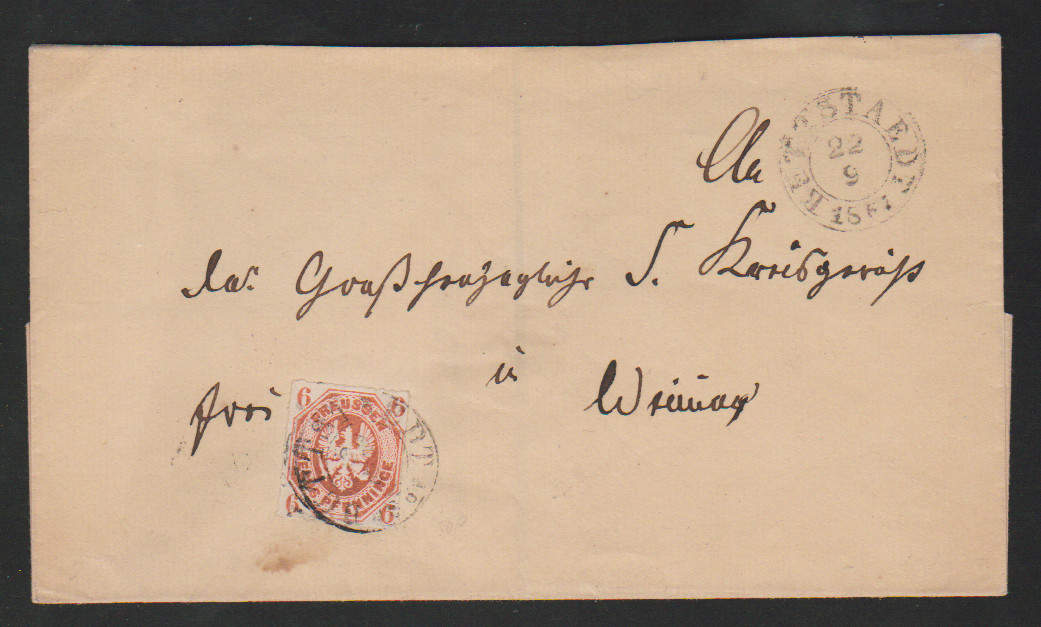 An
BETTSTAEDT
22
9
1867
das Großherzogliche S. Kreisgericht
in
frei
Weimar
6 6
PREUSSEN
SECHS PFENNINGE
6 6